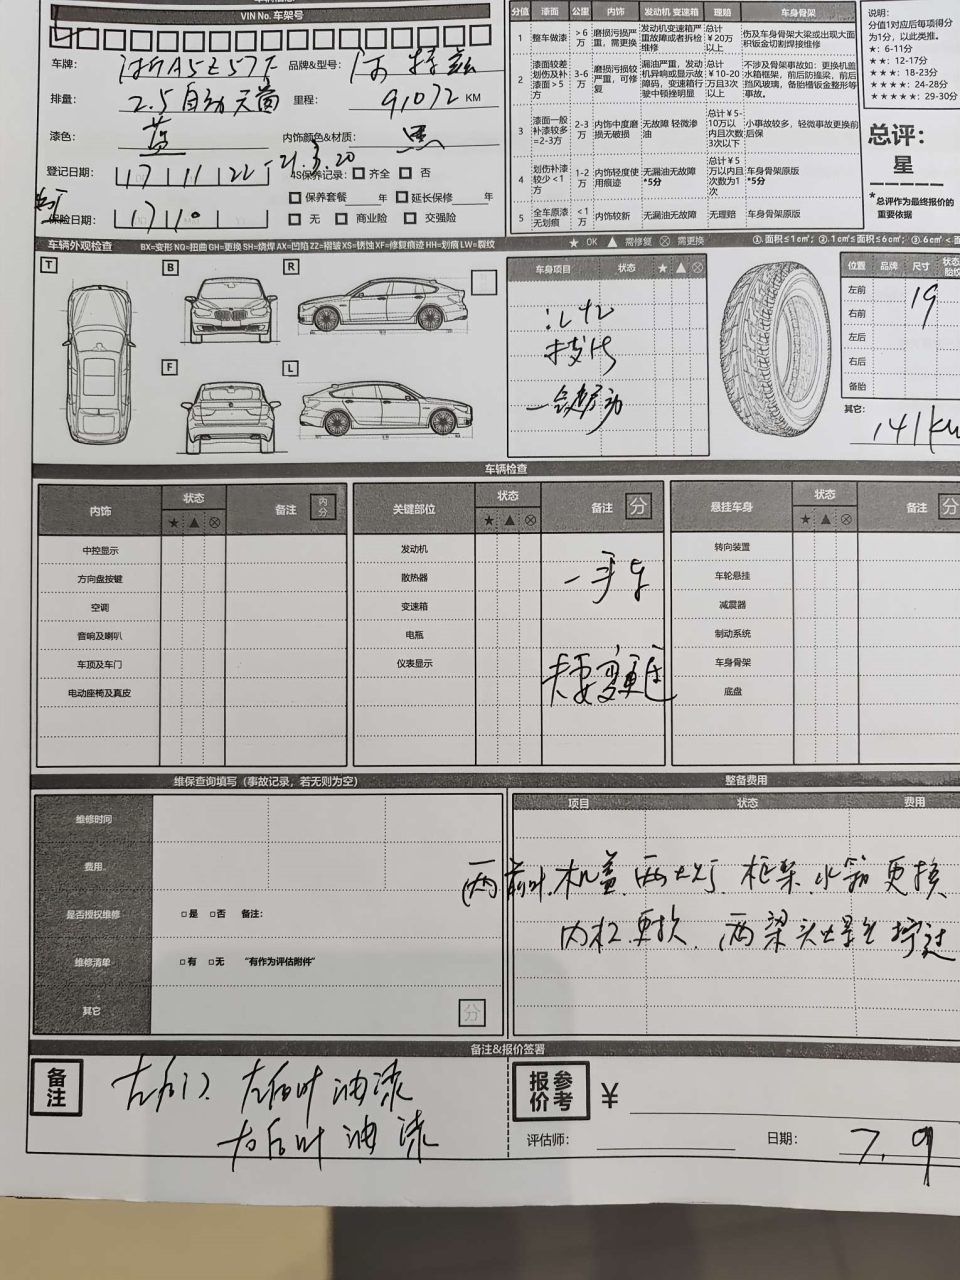 VIN No. 车架号
车牌: 浙A5Z57F 品牌&型号: 阿特兹
排量: 2.5自动天窗 里程: 91072 KM
漆色: 蓝 内饰颜色&材质: 黑
登记日期: 17 11 22 21.3.20 4S保养记录: 齐全 否
保养套餐 年 延长保修 年
保险日期: 17 11 无 商业险 交强险
分值 漆面 公里 内饰 发动机 变速箱 理赔 车身骨架
1 整车做漆 >6万 磨损污损严重，需更换 发动机变速箱严重故障或者拆检维修 总计￥20万以上 伤及车身骨架大梁或出现大面积钣金切割焊接维修
2 漆面较差划伤及补漆面>5方 3-6万 磨损污损较严重，可修复 漏油严重，发动机异响或显示故障码，变速箱行驶中顿挫明显 总计￥10-20万且3次以上 不涉及骨架事故如：更换机盖水箱框架，前后防撞梁，前后挡风玻璃，备胎槽钣金整形等事故。
3 漆面一般补漆较多=2-3方 2-3万 内饰中度磨损无破损 无故障 轻微渗油 总计￥5-10万以内且次数3次以下 小事故较多，轻微事故更换前后保
4 划伤补漆较少<1方 1-2万 内饰轻度使用痕迹 无漏油无故障*5分 总计￥5万以内且次数为1次 车身骨架原版*5分
5 全车原漆无划痕 <1万 内饰较新 无漏油无故障 无理赔 车身骨架原版
说明:
分值1对应后每项得分为1分，以此类推。
★: 6-11分
★★: 12-17分
★★★: 18-23分
★★★★: 24-28分
★★★★★: 29-30分
总评:
星
*总评作为最终报价的重要依据
车辆外观检查 BX=变形 NQ=扭曲 GH=更换 SH=烧焊 AX=凹陷 ZZ=褶皱 XS=锈蚀 XF=修复痕迹 HH=划痕 LW=裂纹 ★ OK ▲ 需修复 ⊗ 需更换 ①.面积≤1㎡; ②.1㎡≤面积≤6㎡; ③.6㎡<面
T B R
F L
车身项目 状态 ★ ▲ ⊗
一键启动
位置 品牌 尺寸 状态
左前
右前 19
左后
右后
备胎
其它:
141kw
车辆检查
内饰 状态 备注 内分
★ ▲ ⊗
中控显示
方向盘按键
空调
音响及喇叭
车顶及车门
电动座椅及真皮
关键部位 状态 备注 分
★ ▲ ⊗
发动机
散热器 一手车
变速箱
电瓶
仪表显示
夫妻变更过
悬挂车身 状态 备注 分
★ ▲ ⊗
转向装置
车轮悬挂
减震器
制动系统
车身骨架
底盘
维保查询填写（事故记录，若无则为空）
维修时间
费用
是否授权维修 □是 □否 备注:
维修清单 □有 □无 "有作为评估附件"
其它 分
整备费用
项目 状态 费用
两前叶.机盖.两大灯.框架.水箱更换
内杠更换.两梁头
备注&报价签署
备注 左后门. 左后叶油漆
右后叶油漆
参考报价 ￥
评估师: 日期: 7.9